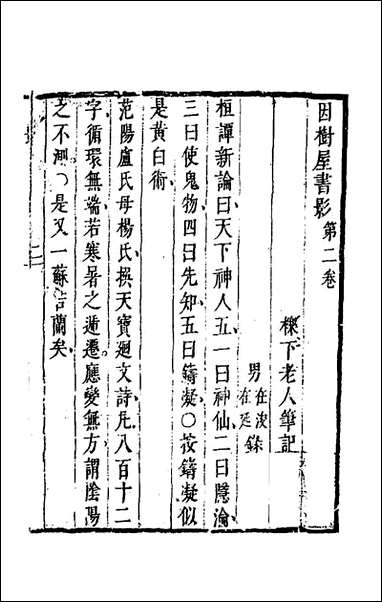 因樹屋書影第二卷
櫟下老人筆記
男在浚錄
在延
桓譚新論曰天下神人五一曰神仙二曰隱淪
三曰使鬼物四曰先知五曰鑄凝○按鑄凝似
是黃白術
范陽盧氏母楊氏撰天寶迴文詩凡八百十二
字循環無端若寒暑之遞遷應變無方謂陰陽
之不測○是又一蘇若蘭矣